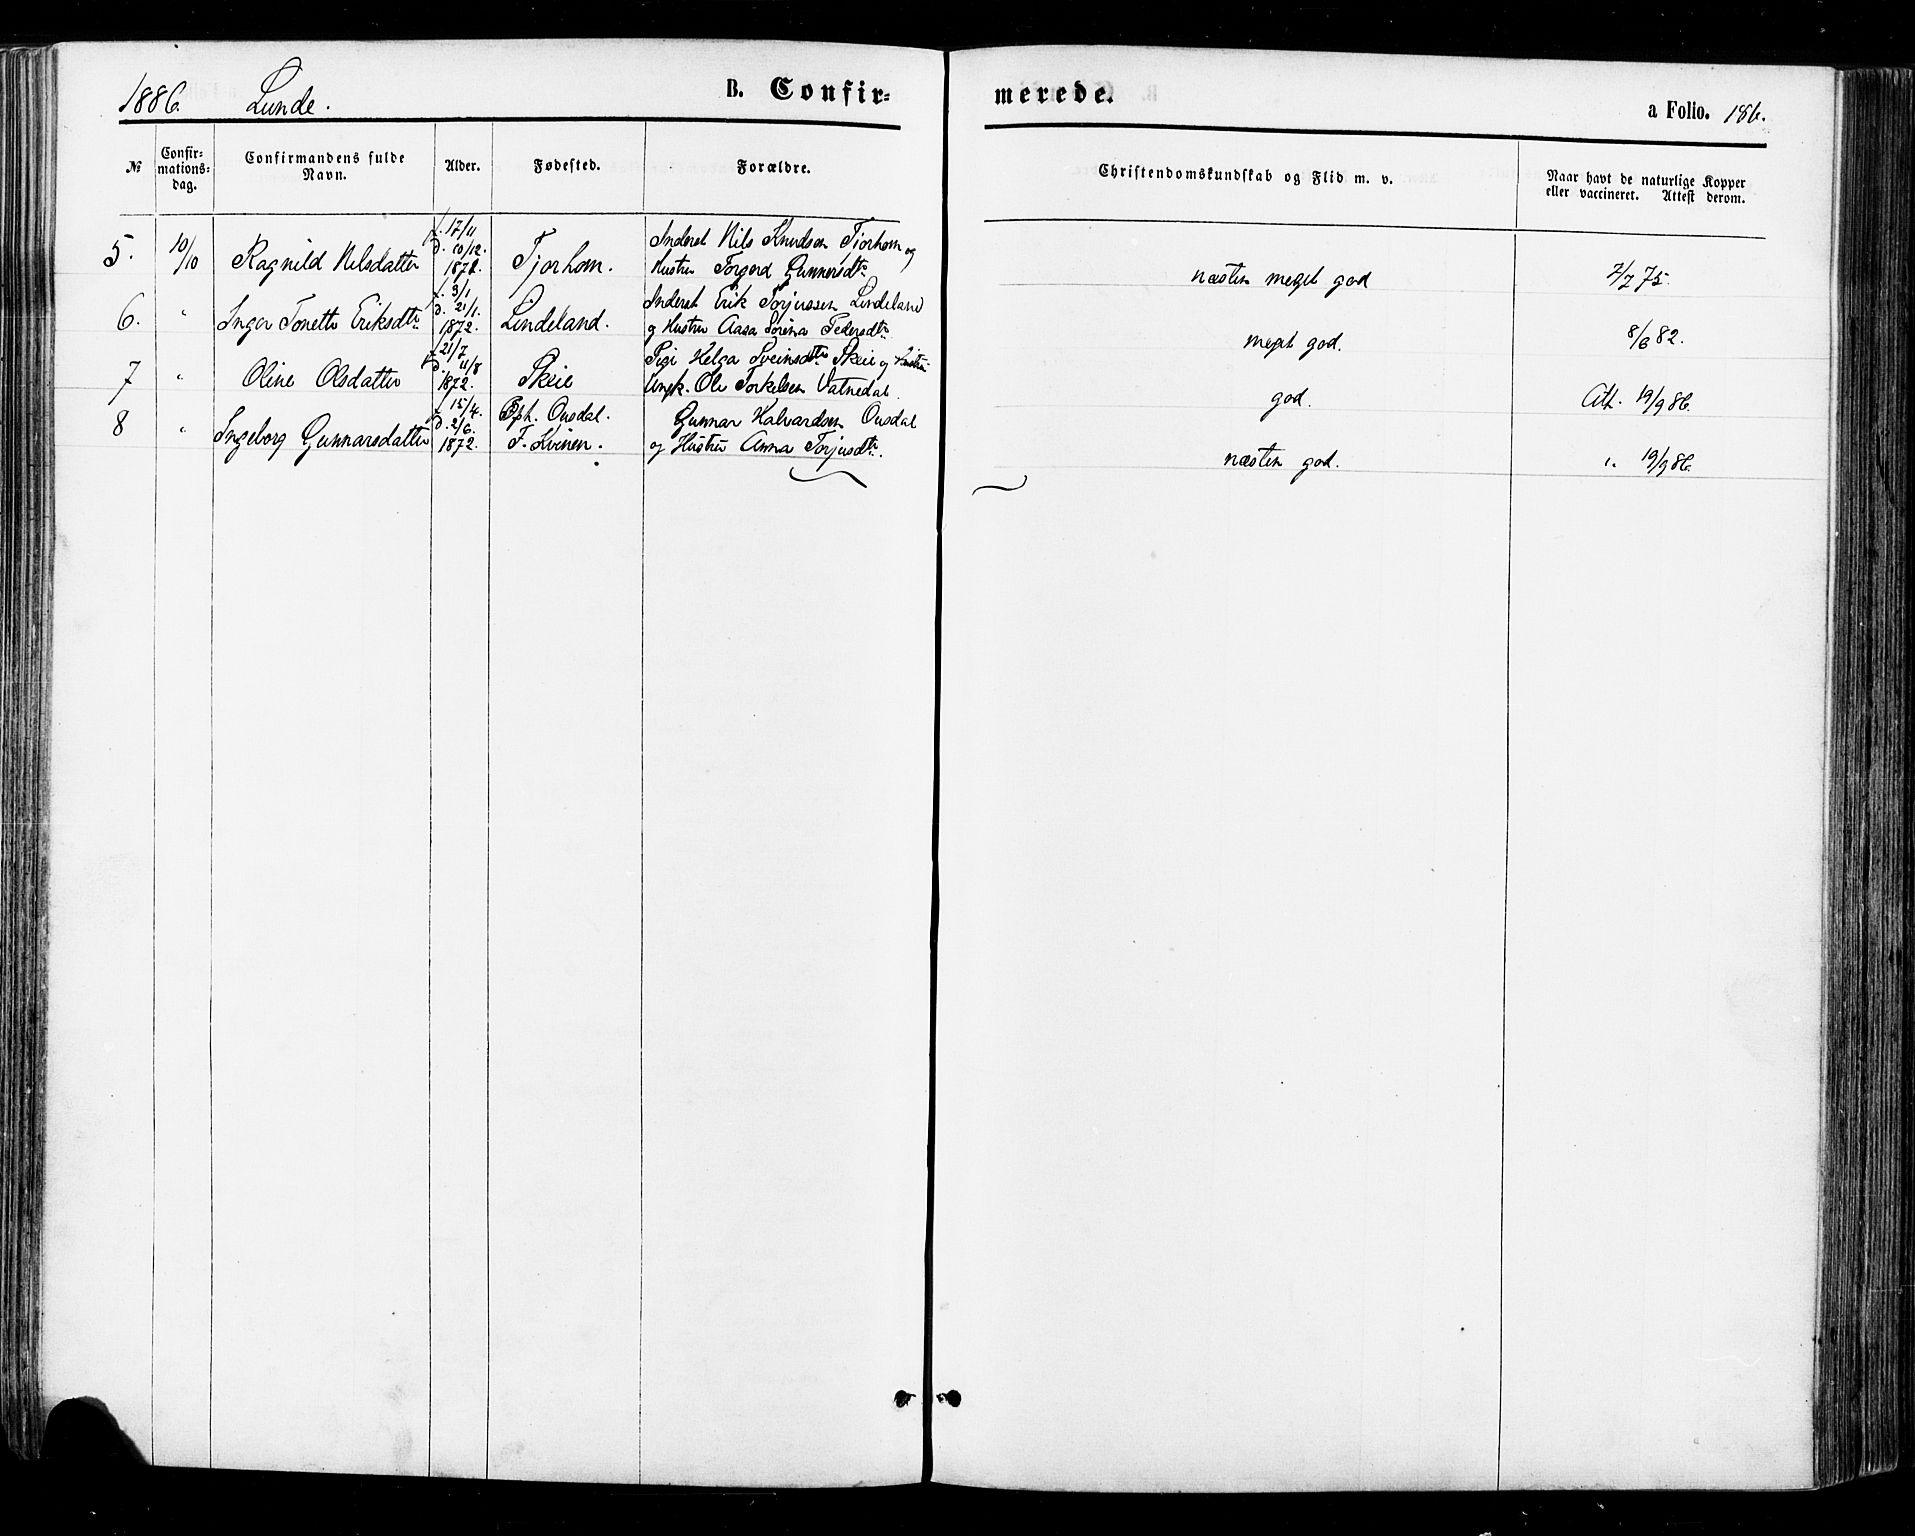 1886. Lunde. B. Confir-
merede. a Folio. 186.
№ Confir-
mations-
dag. Confirmandens fulde
Navn. Alder. Fødested. Forældre. Christendomskundskab og Flid m. v. Naar havt de naturlige Kopper
eller vaccineret. Attest derom.
5. 10/10 Ragnild Nilsdatter f. 17/11
d. 10/12.
1872. Tjorhom. Inderst Nils Knudsen Tjorhom og
Hustru Torgerd Gunnersdtr næsten meget god 2/7 75.
6. " Inger Tonette Eriksdtr. f. 3/1
d. 21/1.
1872. Lindeland. Inderst Erik Torjussen Lindeland
og Hustru Aasa Sørina Pedersdtr meget god. 8/6 82.
7 " Oline Olsdatter f. 21/7
d. 11/8
1872. Skeie Pige Helga Sveinsdtr Skeie og
Ungk. Ole Torkelsen Vatnedal. god. Att. 19/9 86.
8 " Ingeborg Gunnarsdatter f. 15/4.
d. 2/6.
1872. Øph. Ousdal.
F. Kvinen. Gunnar Halvardsen Ousdal
og Hustru Anna Torjusdtr. næsten god. ". 19/9 86.